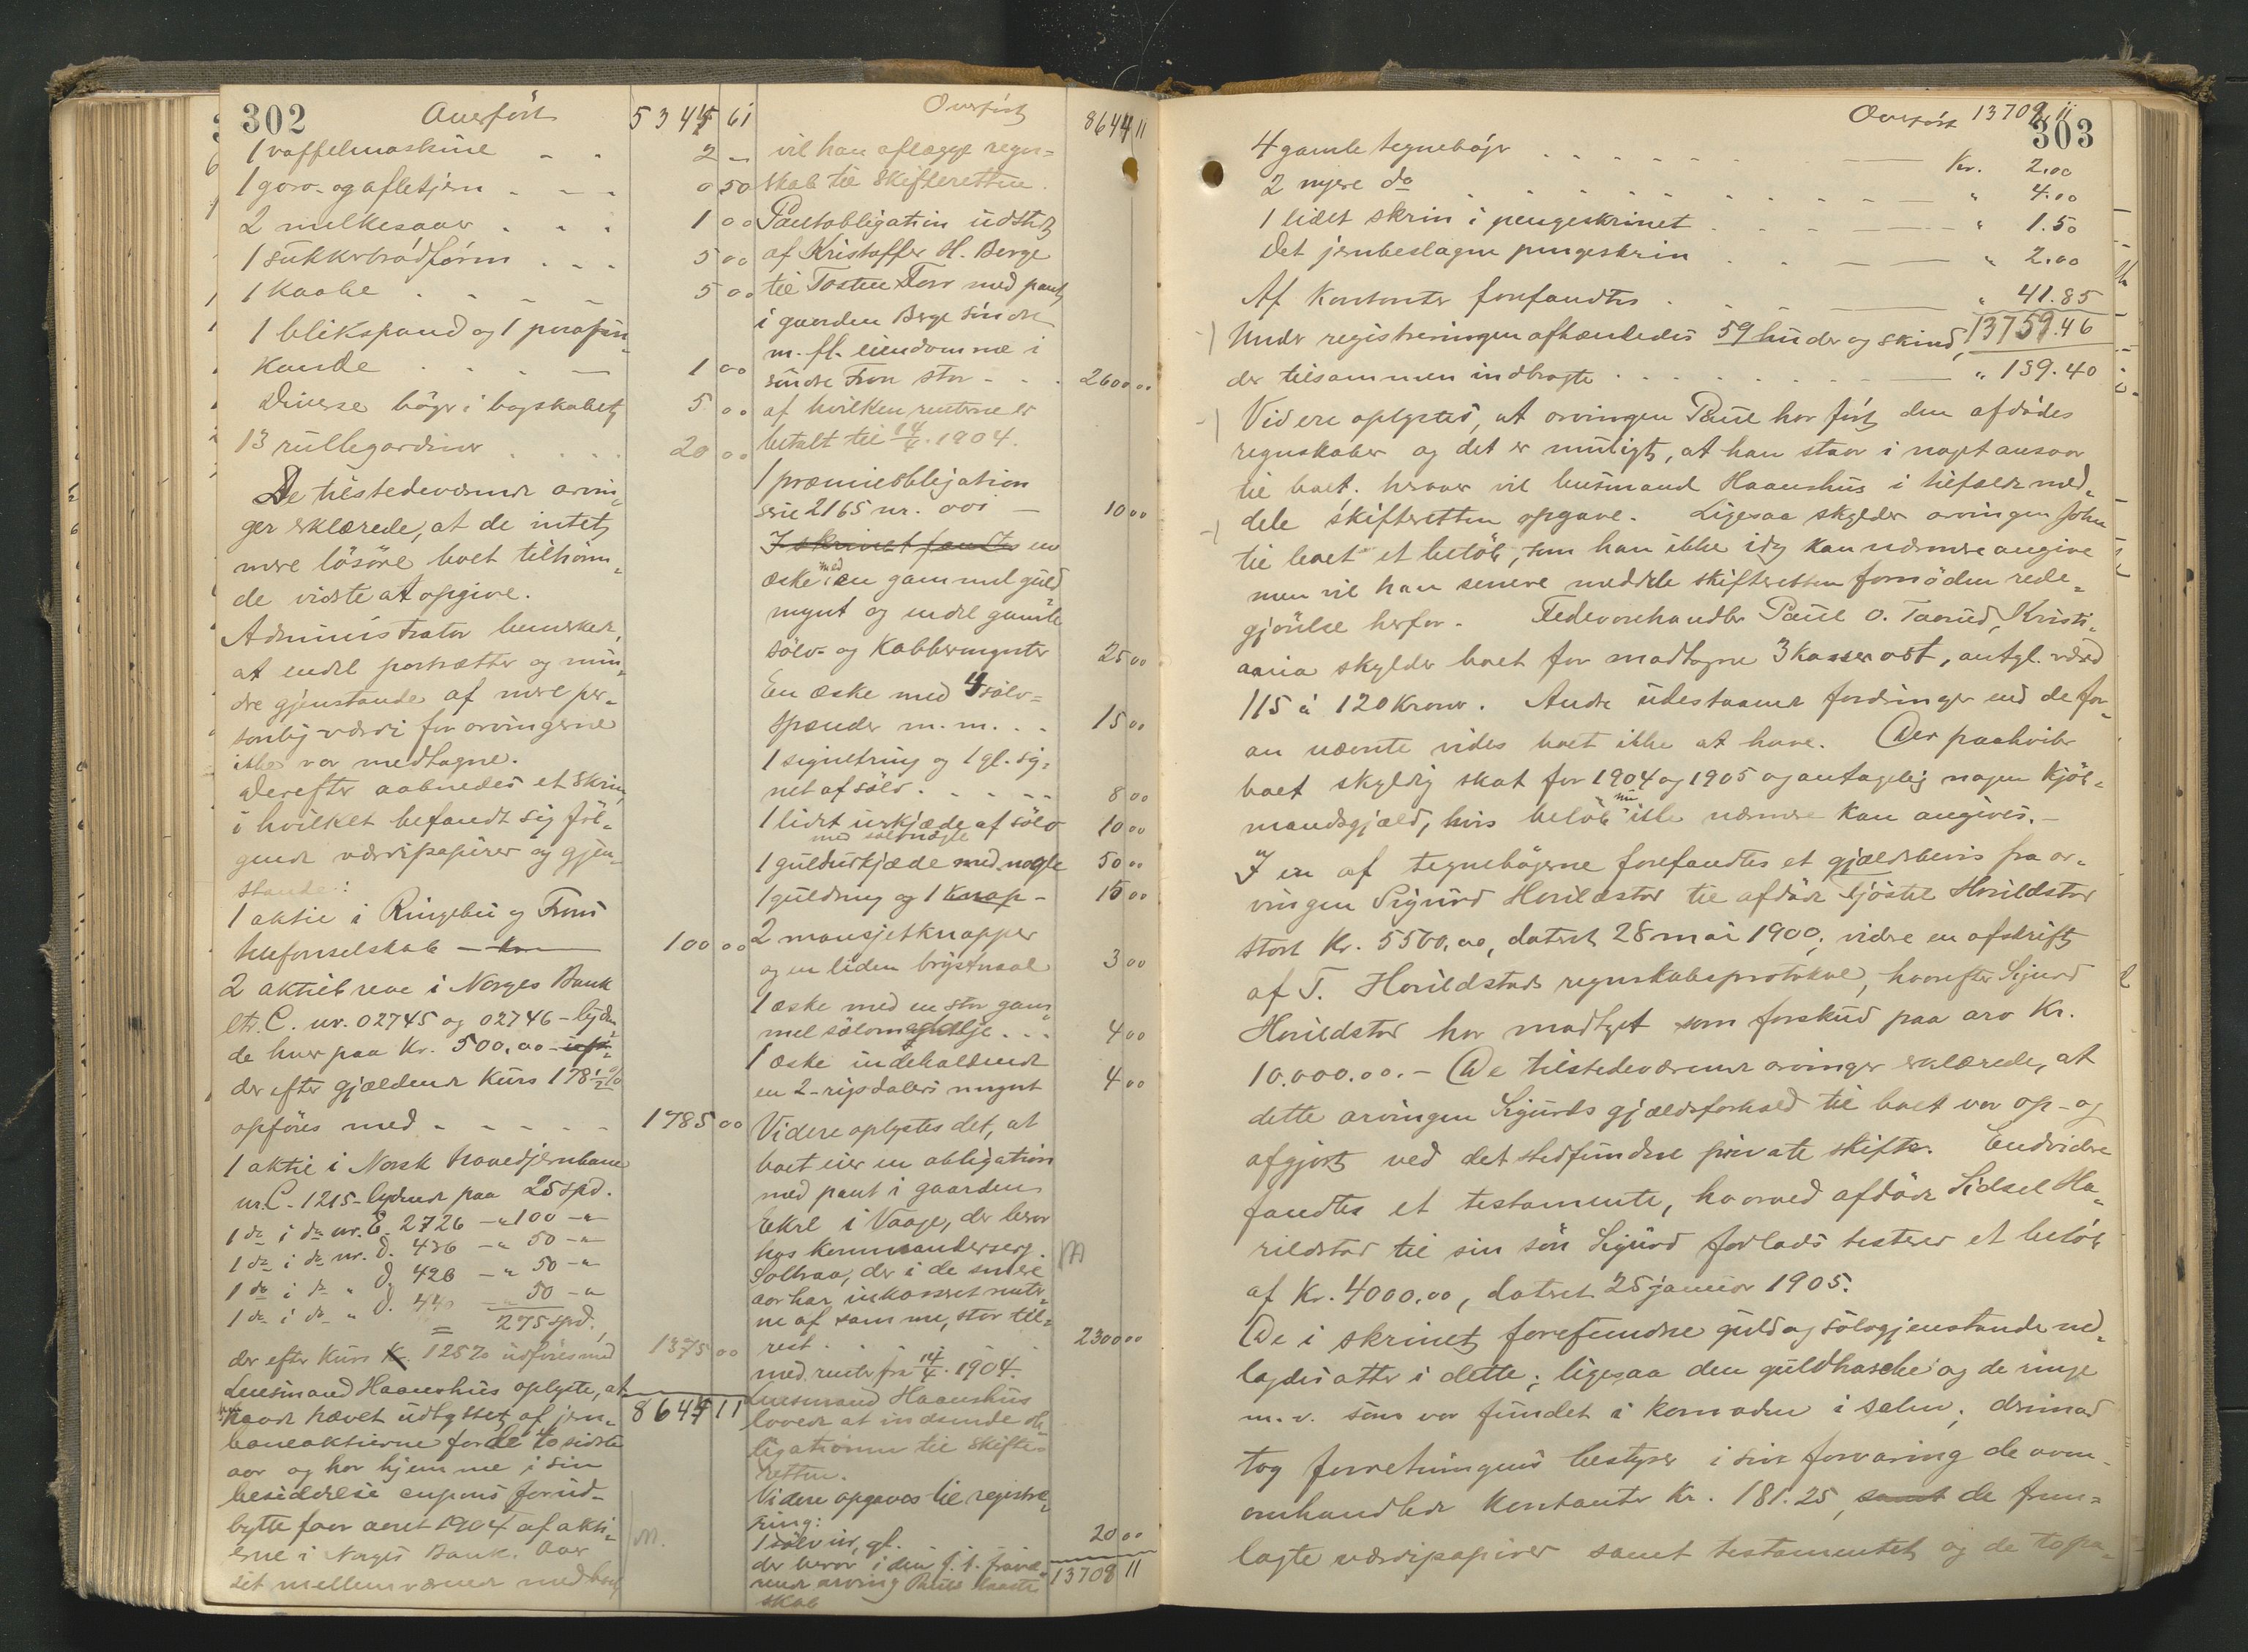 302
Overført 5344 61
1 vaffelmaskine - - 2 -
1 goro- og afletjern - - - 0 50
2 melkesaaer . . . 1 00
1 sukkerbrødform . . . 5 00
1 kaabe . . . . 5 00
1 blikspand og 1 parafin-
kande . . . . 1 00
Diverse bøger i bogskabet 5 00
13 rullegardiner . . . . 20 00
De tilstedeværende arvin-
ger erklærede, at de intet
mere løsøre boet tilhøren-
de vidste at opgive.
Administrator bemerkede,
at endel portrætter og min-
dre gjenstande af mere per-
sonlig værdi for arvingerne
ikke var medtagne.
Derefter aabnedes et skrin,
i hvilket befandt sig føl-
gende værdipapirer og gjen-
stande:
1 aktie i Ringebu og Frons
telefonselskab - 100 00
2 aktiebreve i Norges Bank
ltr. C. nr. 02745 og 02746 - lyden-
de hver paa Kr. 500,00
der efter gjældende kurs 178 1/2 %
opføres med - - - - - 1785 00
1 aktie i Norsk hovedjernbane
nr. C. 1215 - lydende paa 25 spd.
1 do i do nr. E. 2726 - " 100 - "
1 do i do nr. D. 436 - " 50 - "
1 do i do " D. 426 - " 50 - "
1 do i do " D. 440 - " 50 - "
= 275 spd.,
der efter kurs 125 % udføres med 1375 00
Lensmand Haanshus oplyste, at
han havde hævet udbyttet af jern- 8644 11
baneaktierne for de to sidste
aar og har hjemme i sin
besiddelse cupons for ud-
bytte for aaret 1904 af akti-
erne i Norges Bank. Over
sit mellemværende med boet
Overført 8644 11
vil han aflægge regn-
skab til skifteretten.
Pantobligation udstedt
af Kristoffer H. Berge
til Tosten Forr med pant
i gaarden Berge søndre
m. fl. eiendomme i
søndre Fron stor - . . 2600 00
af hvilken renterne er
betalt til 14/4. 1904.
1 præmieobligation
serie 2165 nr. 001 - 10 00
I skrinet fandtes en
æske med en gammel guld
mynt og endel gamle
sølv- og kobbermynter 25 00
En æske med 4 sølv-
spænder m. m. . . 15 00
1 signetring og 1 gl. sig-
net af sølv . - - - - 8 00
1 lidet urkjæde af sølv 10 00
med sølvnøgle
1 guldurkjæde med nøgle 50 00
1 guldring og 1 knap - 15 00
2 mansjetknapper
og en liden brystnaal 3 00
1 æske med en stor gam-
mel sølvmedalje . . . 4 00
1 æske indeholdende
en 2-rigsdalers mynt 4 00
Videre oplystes det, at
boet eier en obligation
med pant i gaarden
Ekre i Vaage, der beror
hos kommandersersj. M
Solhaa, der i de senere
aar har inkasseret renter-
ne af samme, stor til-
rest . . . . 2300 00
med renter fra 14/4. 1904.
Lensmand Haanshus
lovede at indsende ob-
ligationen til skifte-
retten.
Videre opgaves til registre-
ring:
1 sølvur, gl. 20 00
der beror i den f. t. fravæ-
rende arving Pauls 13708 11
skab
303
Overført 13708,11
4 gamle tegnebøger . . . . . . Kr. 2.00
2 nyere do . . . . . . . . " 4.00
1 lidet skrin i pengeskrinet . . . . " 1.50
Det jernbeslagne pengeskrin . . . " 2.00
Af kontanter forefandtes . . " 41.85
13759.46
Under registreringen afhændedes 59 huder og skind,
der tilsammen indbragte . . . . . . " 139.40
Videre oplystes, at arvingen Paul har ført den afdødes
regnskaber og det er muligt, at han staar i noget ansvar
til boet, herover vil lensmand Haanshus i tilfælde med-
dele skifteretten opgave. Ligesaa skylder arvingen John
til boet et beløb, som han ikke idag kan nærmere angive
men vil han senere meddele skifteretten fornøden rede-
gjørelse herfor. Fedevarehandler Paul O. Taarud, Kristi-
ania skylder boet for modtagne 3 kasser ost, antgl. værd
115 à 120 kroner. Andre udestaaende fordringer end de for-
an nævnte vides boet ikke at have. Der paahviler
boet skyldig skat for 1904 og 1905 og antagelig nogen kjøb-
mandsgjæld, hvis beløb nu ikke nærmere kan angives. -
I en af tegnebøgerne forefandtes et gjældsbevis fra ar-
vingen Sigurd Horildstad til afdøde Kjøstel Horildstad
stort Kr. 5500,00, dateret 28 mai 1900, videre en afskrift
af T. Horildstads regnskabsprotokol, hvorefter Sigurd
Horildstad har modtaget som forskud paa arv Kr.
10.000.00. - De tilstedeværende arvinger erklærede, at
dette arvingen Sigurds gjældsforhold til boet var op- og
afgjort ved det stedfundne private skifte. Endvidere
fandtes et testamente, hvorved afdøde Sidsel Ho-
rildstad til sin søn Sigurd forlods testerer et beløb
af Kr. 4000,00, dateret 25 januar 1905.
De i skrinet forefundne guld og sølvgjenstande ned-
lagdes atter i dette; ligesaa den guldhasche og de ringe
m. v. som var fundet i komoden i salen; derimod
tog forretningens bestyrer i sin forvaring de oven-
omhandlede kontanter Kr. 181.25, samt de frem-
lagte værdipapirer samt testamentet og de topa-